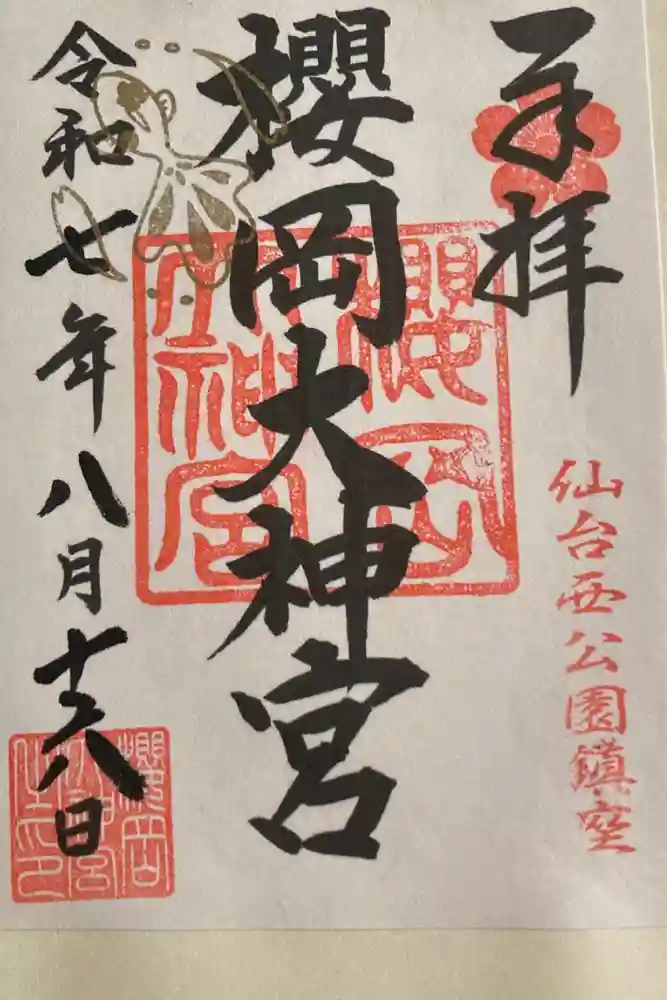 奉拝
仙台西公園鎮座
櫻岡大神宮
櫻岡
大神宮
令和七年八月十六日
櫻岡